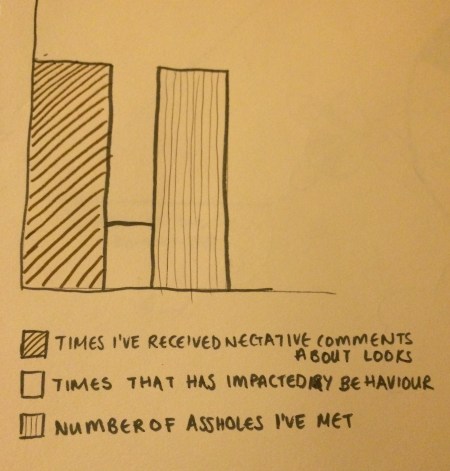 TIMES I'VE RECEIVED NEGATIVE COMMENTS
ABOUT LOOKS
TIMES THAT HAS IMPACTED MY BEHAVIOUR
NUMBER OF ASSHOLES I'VE MET